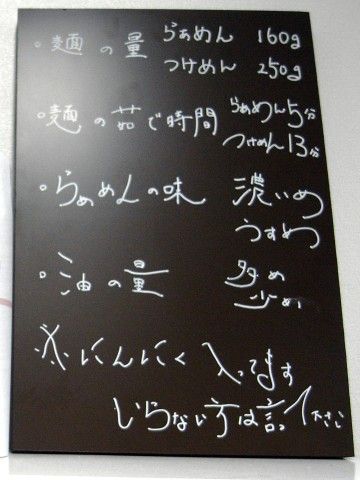 ・麺の量 らぁめん 160g
つけめん 250g
・麺の茹で時間 らぁめん5分
つけめん13分
・らぁめんの味 濃いめ
うすめ
・油の量 多め
少め
※にんにく入ってます
いらない方は言って下さい